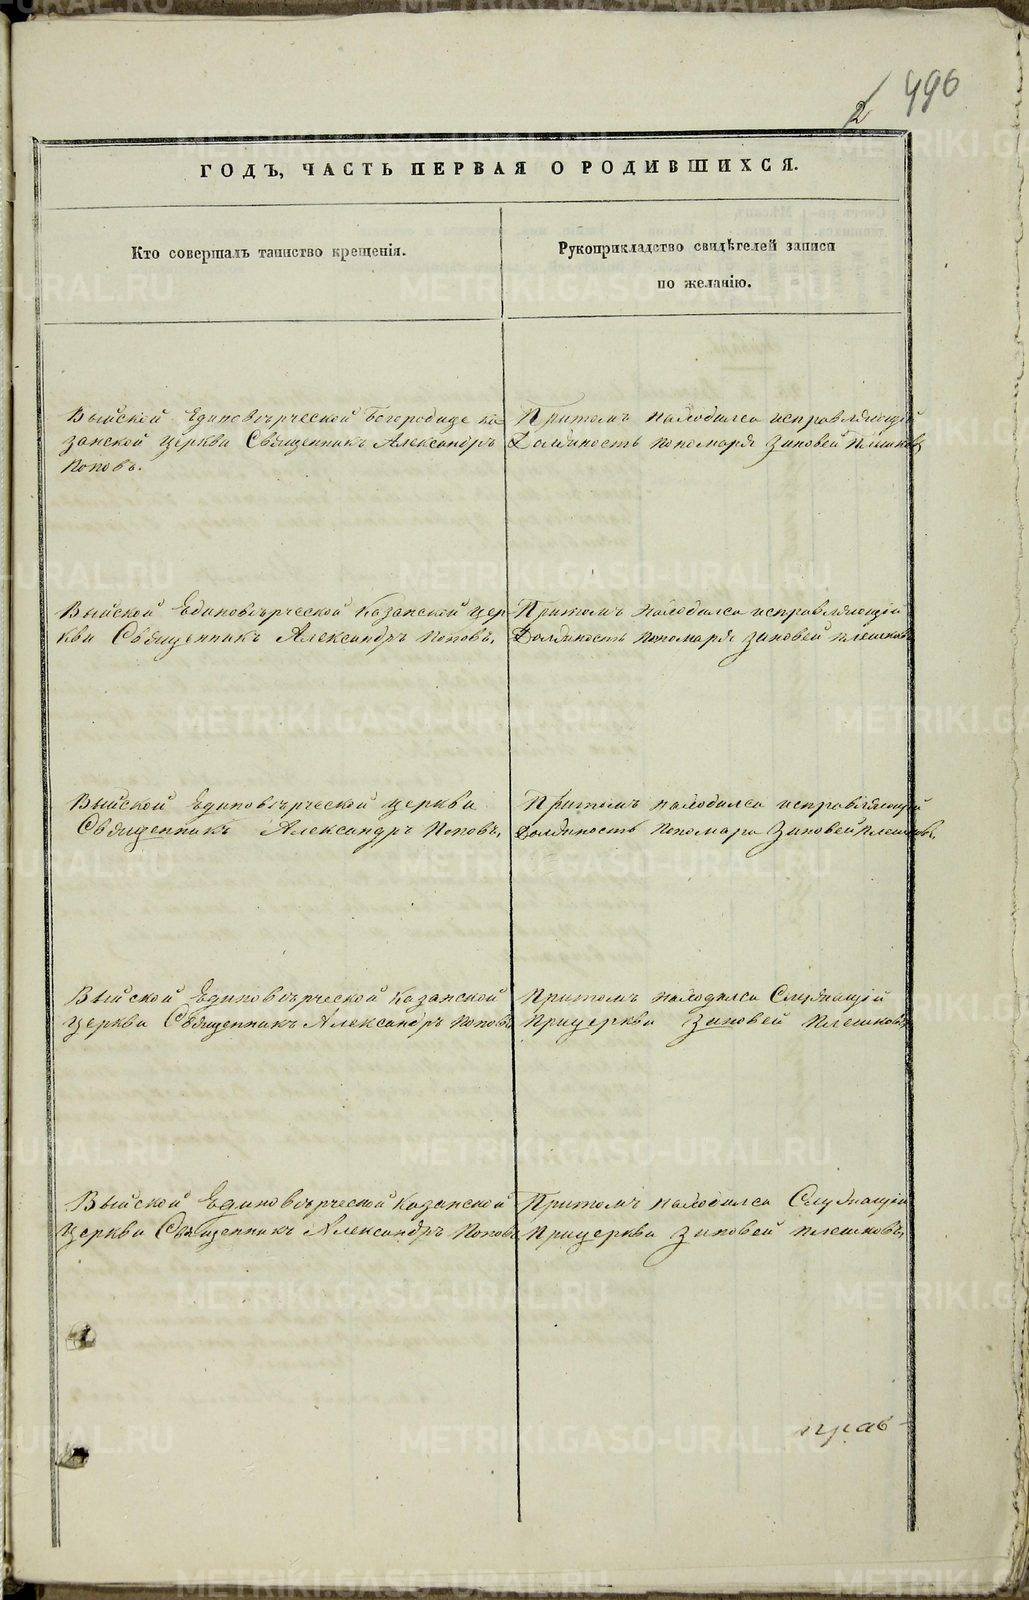 2 496
ГОДЪ, ЧАСТЬ ПЕРВАЯ О РОДИВШИХСЯ.
Кто совершалъ таинство крещенія.
Рукоприкладство свидѣтелей записи
по желанію.
Выйской Единовѣрческой Богородице Ка
занской церкви Священникъ Александръ
Поповъ.
Притомъ находился исправляющій
Должность пономаря Зиновей Плешковъ
Выйской Единовѣрческой Казанской цер
кви Священникъ Александръ Поповъ,
Притомъ находился исправляющій
Должность пономаря Зиновей Плешковъ
Выйской Единовѣрческой церкви
Священникъ Александръ Поповъ,
Притомъ находился исправляющій
Должность пономаря Зиновей Плешковъ,
Выйской Единовѣрческой Казанской
церкви Священникъ Александръ Поповъ
Притомъ находился Служащій
Прицеркви Зиновей Плешковъ,
Выйской Единовѣрческой Казанской
Церкви Священникъ Александръ Поповъ
Притомъ находился Служащій
Прицеркви Зиновей Плешковъ,
прав-
METRIKI.GASO-URAL.RU